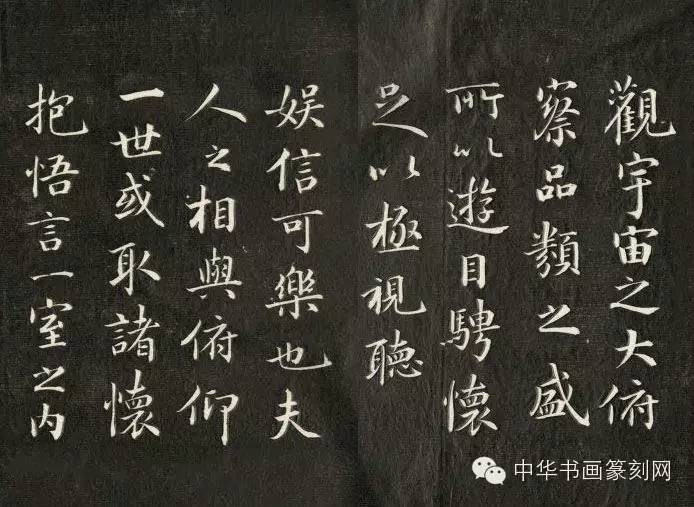 觀宇宙之大俯
察品類之盛
所以遊目騁懷
足以極視聽
娱信可樂也夫
人之相與俯仰
一世或取諸懷
抱悟言一室之内
中华书画篆刻网